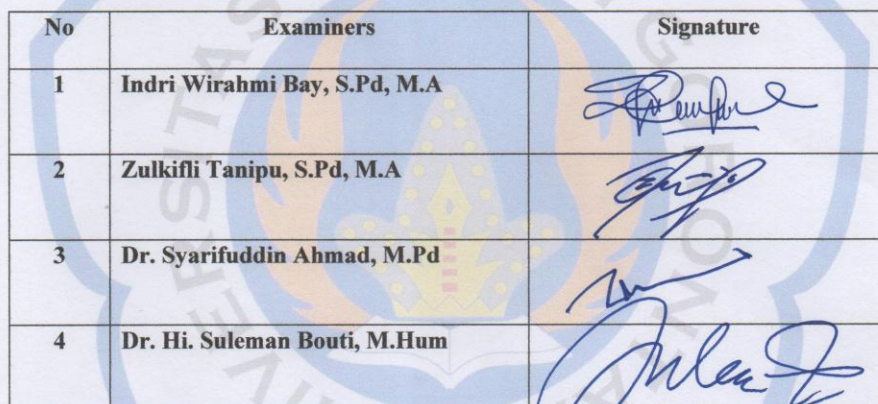 No Examiners Signature
1 Indri Wirahmi Bay, S.Pd, M.A
2 Zulkifli Tanipu, S.Pd, M.A
3 Dr. Syarifuddin Ahmad, M.Pd
4 Dr. Hi. Suleman Bouti, M.Hum